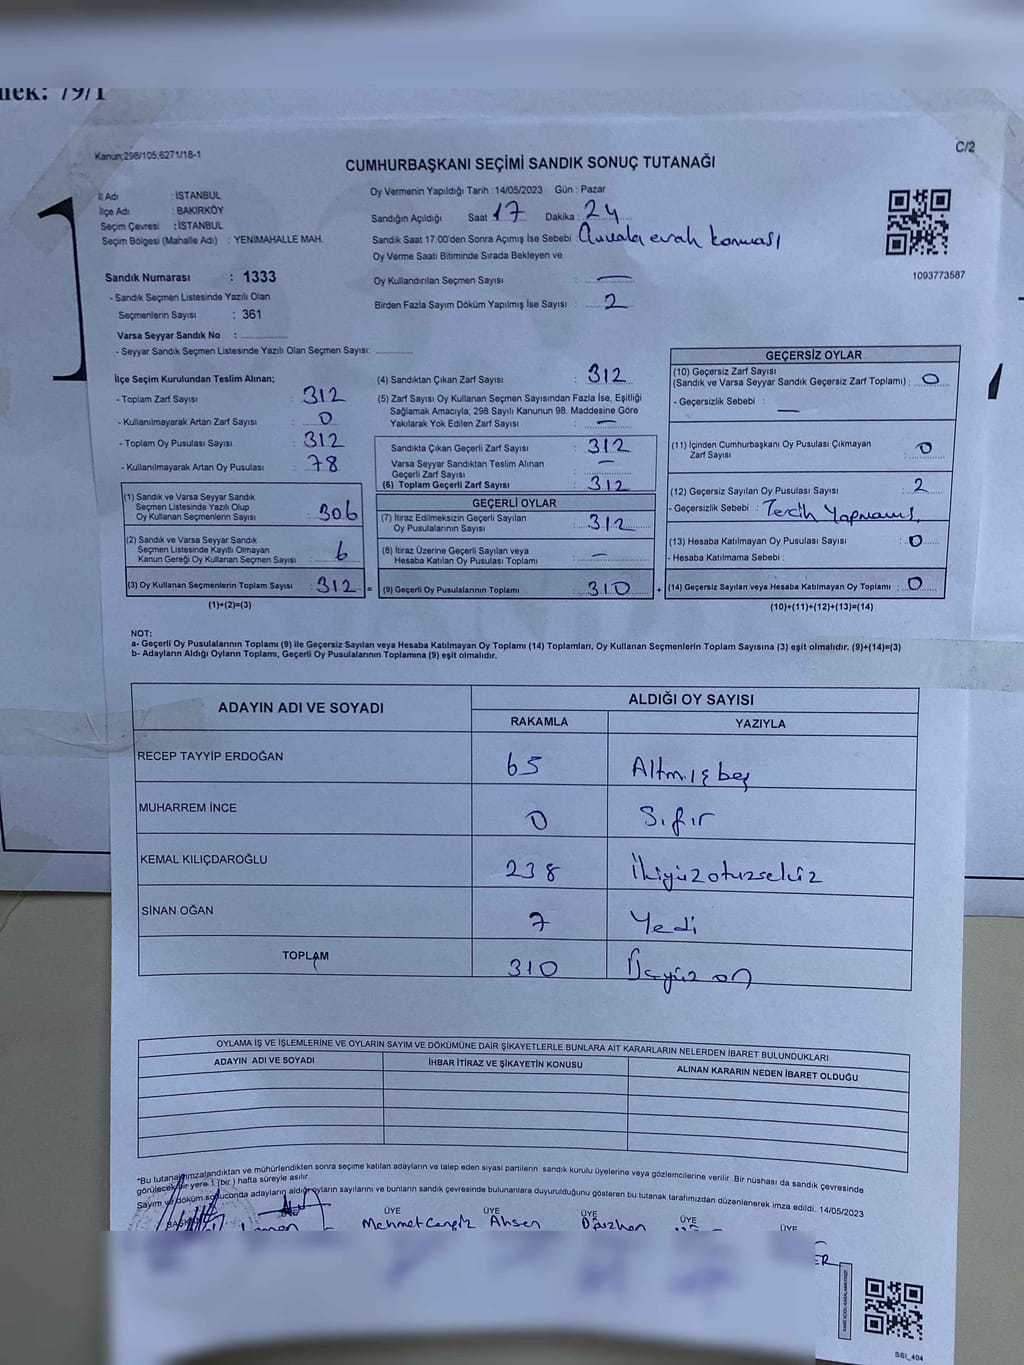 nek: 79/1
Kanun;298/105;6271/18-1
C/2
CUMHURBAŞKANI SEÇİMİ SANDIK SONUÇ TUTANAĞI
İl Adı : İSTANBUL
İlçe Adı : BAKIRKÖY
Seçim Çevresi : İSTANBUL
Seçim Bölgesi (Mahalle Adı) : YENİMAHALLE MAH.
Oy Vermenin Yapıldığı Tarih : 14/05/2023 Gün : Pazar
Sandığın Açıldığı Saat 17 Dakika : 24
Sandık Saat 17:00'den Sonra Açımış İse Sebebi :
Oy Verme Saati Bitiminde Sırada Bekleyen ve
Oy Kullandırılan Seçmen Sayısı : —
Birden Fazla Sayım Döküm Yapılmış İse Sayısı : 2
1093773587
Sandık Numarası : 1333
- Sandık Seçmen Listesinde Yazılı Olan
Seçmenlerin Sayısı : 361
Varsa Seyyar Sandık No :
- Seyyar Sandık Seçmen Listesinde Yazılı Olan Seçmen Sayısı:
İlçe Seçim Kurulundan Teslim Alınan;
- Toplam Zarf Sayısı : 312
- Kullanılmayarak Artan Zarf Sayısı : 0
- Toplam Oy Pusulası Sayısı : 312
- Kullanılmayarak Artan Oy Pusulası : 78
(1) Sandık ve Varsa Seyyar Sandık
Seçmen Listesinde Yazılı Olup
Oy Kullanan Seçmenlerin Sayısı : 306
(2) Sandık ve Varsa Seyyar Sandık
Seçmen Listesinde Kayıtlı Olmayan
Kanun Gereği Oy Kullanan Seçmen Sayısı : 6
(3) Oy Kullanan Seçmenlerin Toplam Sayısı : 312 =
(1)+(2)=(3)
(4) Sandıktan Çıkan Zarf Sayısı : 312
(5) Zarf Sayısı Oy Kullanan Seçmen Sayısından Fazla İse, Eşitliği
Sağlamak Amacıyla; 298 Sayılı Kanunun 98. Maddesine Göre
Yakılarak Yok Edilen Zarf Sayısı : —
Sandıkta Çıkan Geçerli Zarf Sayısı : 312
Varsa Seyyar Sandıktan Teslim Alınan
Geçerli Zarf Sayısı : —
(6) Toplam Geçerli Zarf Sayısı : 312
GEÇERLİ OYLAR
(7) İtiraz Edilmeksizin Geçerli Sayılan
Oy Pusulalarının Sayısı : 312
(8) İtiraz Üzerine Geçerli Sayılan veya
Hesaba Katılan Oy Pusulası Toplamı : —
(9) Geçerli Oy Pusulalarının Toplamı : 310 +
GEÇERSİZ OYLAR
(10) Geçersiz Zarf Sayısı
(Sandık ve Varsa Seyyar Sandık Geçersiz Zarf Toplamı) : 0
- Geçersizlik Sebebi : —
(11) İçinden Cumhurbaşkanı Oy Pusulası Çıkmayan
Zarf Sayısı : 0
(12) Geçersiz Sayılan Oy Pusulası Sayısı : 2
- Geçersizlik Sebebi : Tercih Yapmamış
(13) Hesaba Katılmayan Oy Pusulası Sayısı : 0
- Hesaba Katılmama Sebebi :
(14) Geçersiz Sayılan veya Hesaba Katılmayan Oy Toplamı : 0
(10)+(11)+(12)+(13)=(14)
NOT:
a- Geçerli Oy Pusulalarının Toplamı (9) ile Geçersiz Sayılan veya Hesaba Katılmayan Oy Toplamı (14) Toplamları, Oy Kullanan Seçmenlerin Toplam Sayısına (3) eşit olmalıdır. (9)+(14)=(3)
b- Adayların Aldığı Oyların Toplamı, Geçerli Oy Pusulalarının Toplamına (9) eşit olmalıdır.
ADAYIN ADI VE SOYADI
ALDIĞI OY SAYISI
RAKAMLA YAZIYLA
RECEP TAYYİP ERDOĞAN 65 Altmışbeş
MUHARREM İNCE 0 Sıfır
KEMAL KILIÇDAROĞLU 238 İkiyüzotuzsekiz
SİNAN OĞAN 7 Yedi
TOPLAM 310 Üçyüz on
OYLAMA İŞ VE İŞLEMLERİNE VE OYLARIN SAYIM VE DÖKÜMÜNE DAİR ŞİKAYETLERLE BUNLARA AİT KARARLARIN NELERDEN İBARET BULUNDUKLARI
ADAYIN ADI VE SOYADI
İHBAR İTİRAZ VE ŞİKAYETİN KONUSU
ALINAN KARARIN NEDEN İBARET OLDUĞU
*Bu tutanak imzalandıktan ve mühürlendikten sonra seçime katılan adayların ve talep eden siyasi partilerin sandık kurulu üyelerine veya gözlemcilerine verilir. Bir nüshası da sandık çevresinde
görülecek bir yere 1 (bir) hafta süreyle asılır.
Sayım ve döküm sonucunda adayların aldığı oyların sayılarını ve bunların sandık çevresinde bulunanlara duyurulduğunu gösteren bu tutanak tarafımızdan düzenlenerek imza edildi. 14/05/2023
ÜYE ÜYE ÜYE ÜYE ÜYE
Mehmet Cengiz Ahsen Oğuzhan
SSİ_404